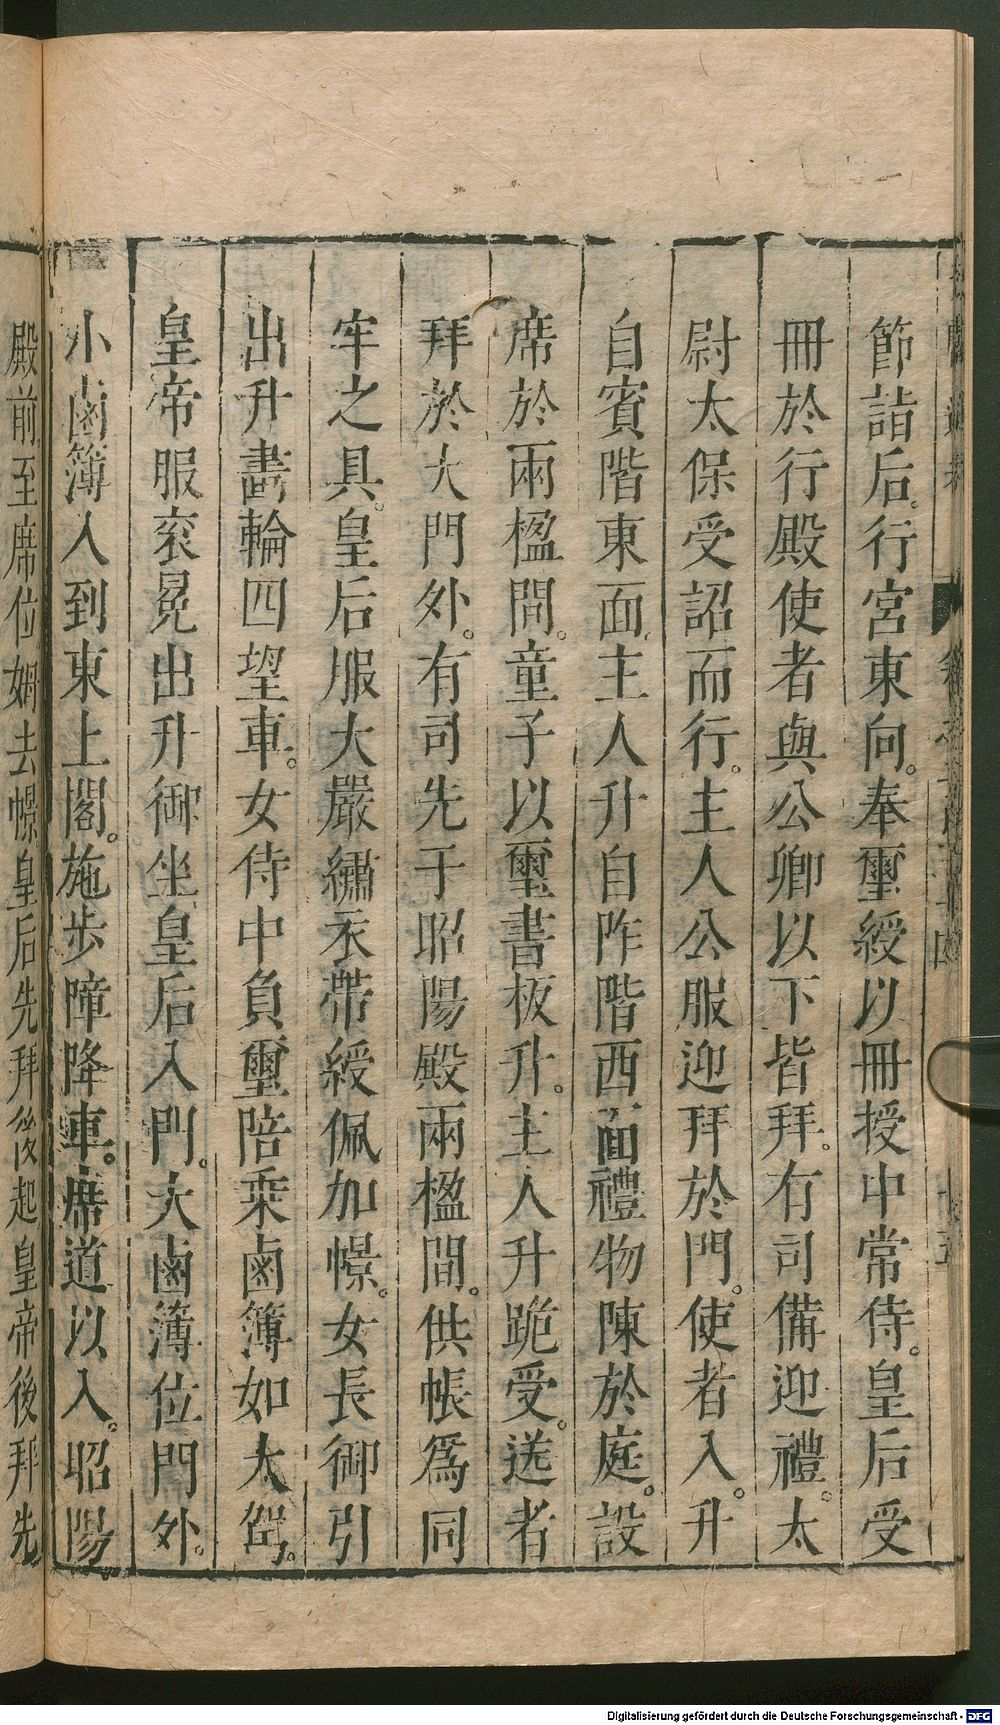 節詣后。行宮東向。奉璽綬以冊授中常侍。皇后受
冊於行殿使者與公卿以下皆拜。有司備迎禮。太
尉太保受詔而行。主人公服迎拜於門。使者入。升
自賓階東面。主人升自阼階西面禮物陳於庭。設
席於兩楹間。童子以璽書板升。主人升跪受。送者
拜於大門外。有司先于昭陽殿兩楹間。供帳爲同
牢之具。皇后服大嚴繡衣帶綬佩加幜。女長御引
出升畵輪四望車。女侍中負璽陪乘鹵簿如大駕。
皇帝服衮冕出升御坐皇后入門。大鹵簿位門外。
小鹵簿入到東上閤。施步障降車。席道以入。昭陽
殿前至席位姆去幜皇后先拜後起皇帝後拜先
Digitalisierung gefördert durch die Deutsche Forschungsgemeinschaft - DFG